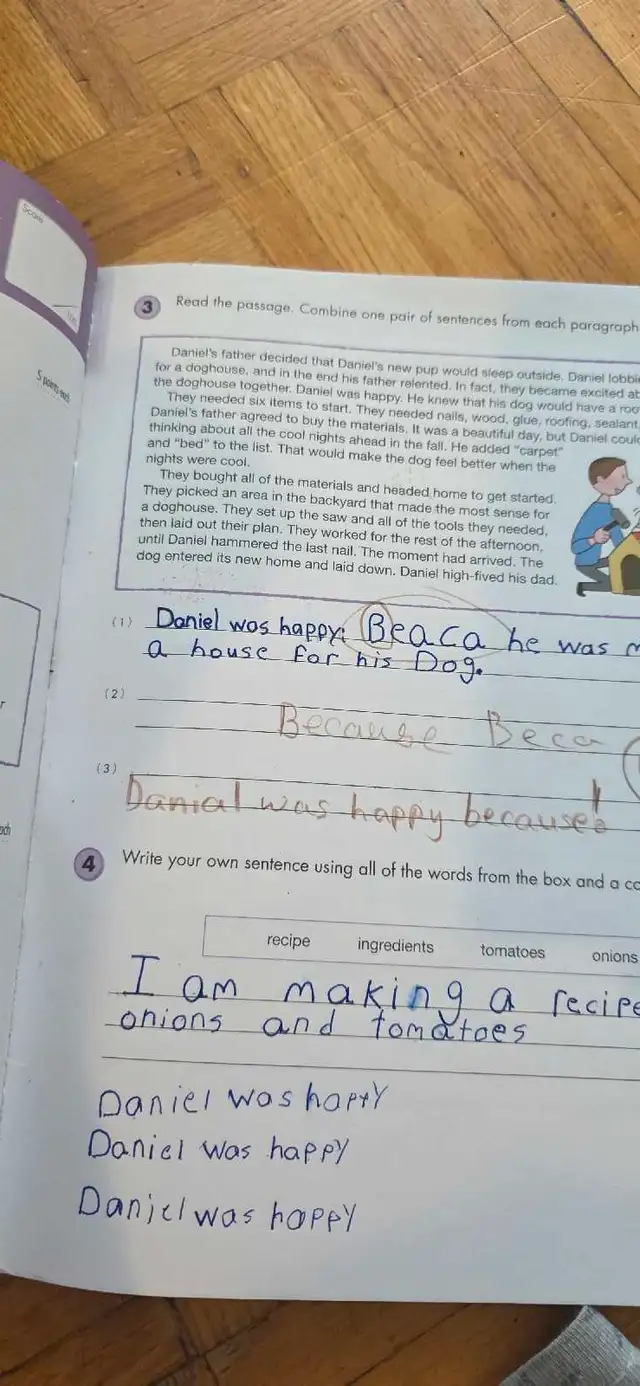 Score
100
5 points each
3 Read the passage. Combine one pair of sentences from each paragraph
Daniel's father decided that Daniel's new pup would sleep outside. Daniel lobbi
for a doghouse, and in the end his father relented. In fact, they became excited ab
the doghouse together. Daniel was happy. He knew that his dog would have a roo
They needed six items to start. They needed nails, wood, glue, roofing, sealant,
Daniel's father agreed to buy the materials. It was a beautiful day, but Daniel coul
thinking about all the cool nights ahead in the fall. He added "carpet"
and "bed" to the list. That would make the dog feel better when the
nights were cool.
They bought all of the materials and headed home to get started.
They picked an area in the backyard that made the most sense for
a doghouse. They set up the saw and all of the tools they needed,
then laid out their plan. They worked for the rest of the afternoon,
until Daniel hammered the last nail. The moment had arrived. The
dog entered its new home and laid down. Daniel high-fived his dad.
(1) Daniel was happy; Beaca he was m
a house for his Dog.
(2)
Because Beca
(3)
Danial was happy because
4 Write your own sentence using all of the words from the box and a co
recipe ingredients tomatoes onions
I am making a recipe
onions and tomatoes
Daniel was happy
Daniel was happy
Daniel was happy